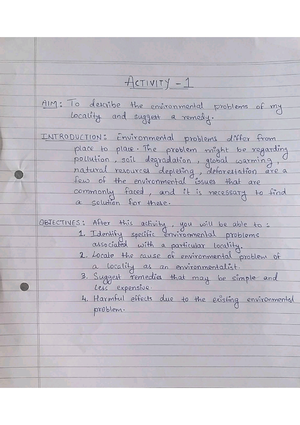 ACTIVITY - 1
AIM: To describe the environmental problems of my
locality and suggest a remedy.
INTRODUCTION: Environmental problems differ from
place to place. The problem might be regarding
pollution, soil degradation, global warming,
natural resources depleting, deforestation are a
few of the environmental issues that are
commonly faced, and it is necessary to find
a solution for these.
OBJECTIVES: After this activity, you will be able to:
1. Identify specific environmental problems
associated with a particular locality.
2. Locate the cause of environmental problem of
a locality as an environmentalist.
3. Suggest remedies that may be simple and
less expensive
4. Harmful effects due to the existing environmental
problem.